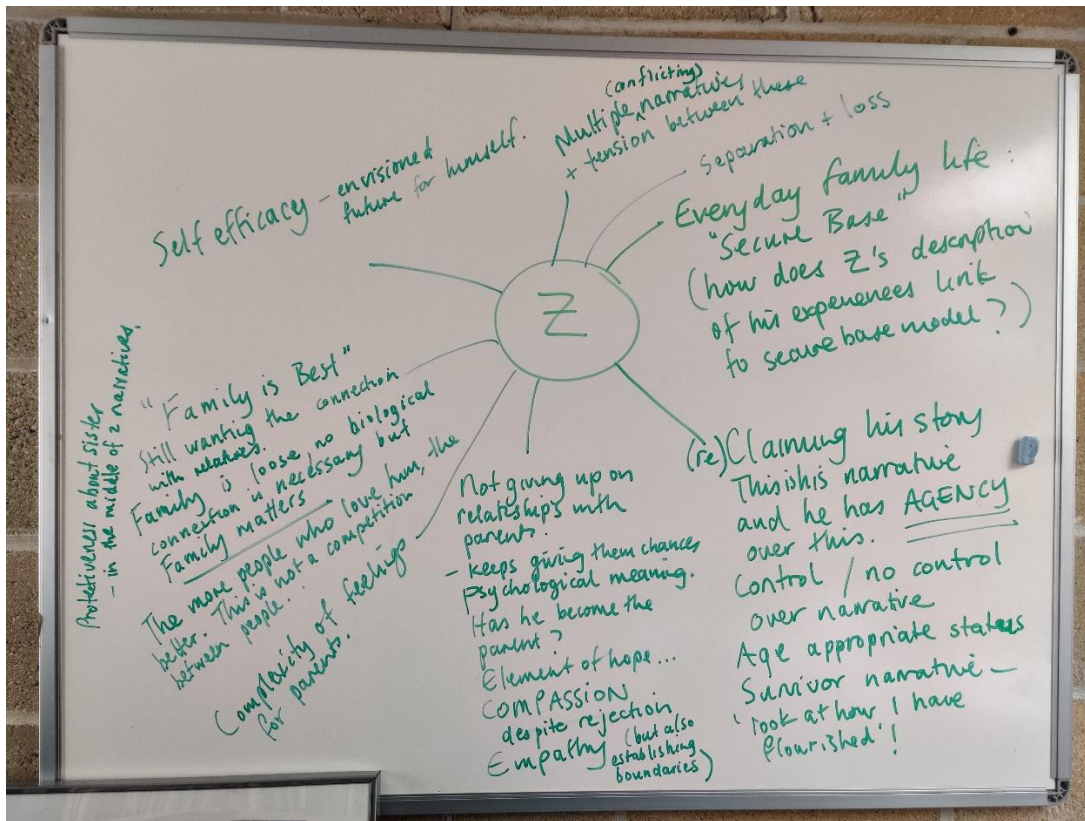 Z
(conflicting)
Multiple ^ narratives
+ tension between these
Separation + loss
Everyday family life:
"Secure Base"
(how does Z's description
of his experiences link
to secure base model?)
(re)Claiming his story
This is his narrative
and he has AGENCY
over this.
Control / no control
over narrative
Age appropriate status
Survivor narrative –
'look at how I have
flourished'!
Not giving up on
relatiships with
parents.
- keeps giving them chances
psychological meaning.
Has he become the
parent?
Element of hope...
COMPASSION
despite rejection
Empathy (but also
establishing
boundaries)
Complexity of feelings
for parents.
"Family is Best"
Still wanting the connection
with relatives.
Family is loose no biological
connection is necessary but
Family matters
The more people who love him, the
better. This is not a competition
between people.
Protectiveness about sister
- in the middle of 2 narratives.
Self efficacy – envisioned
future for himself.